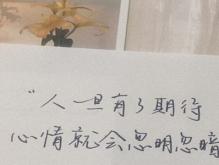 “人一旦有了期待
心情就会忽明忽暗